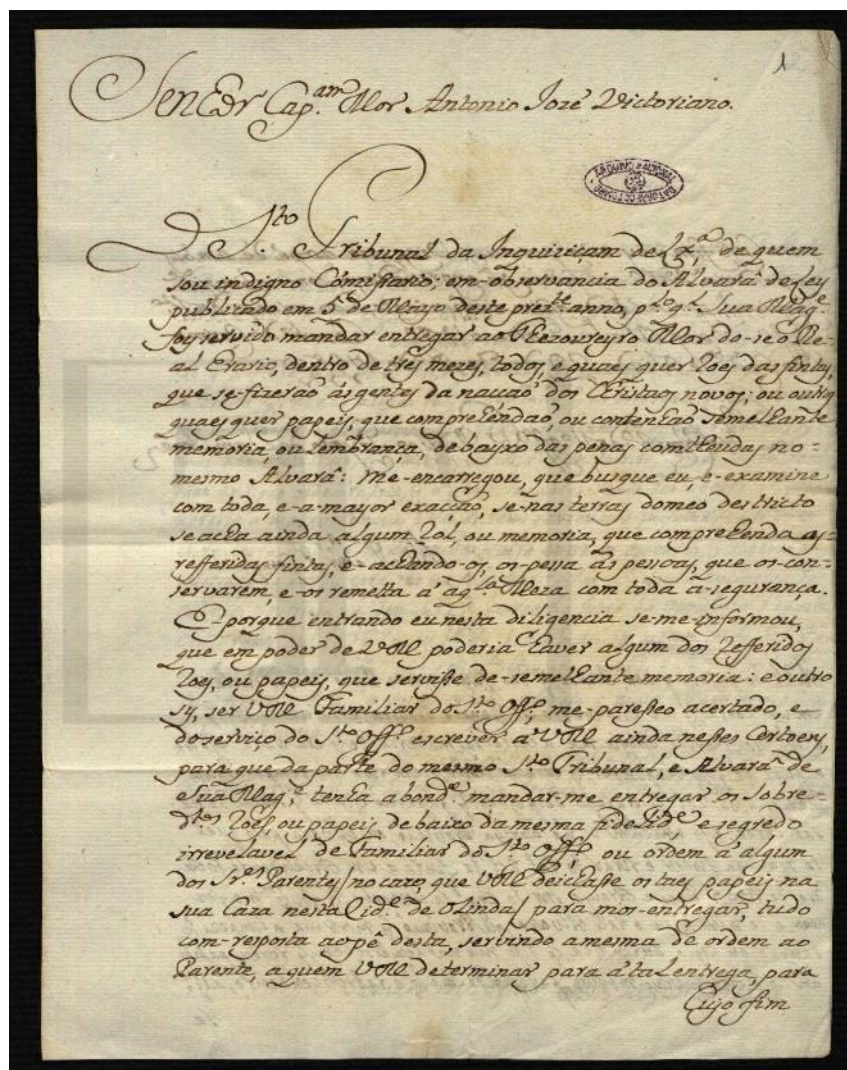 1
Senhor Cap.am Mor Antonio Jozé Victoriano.
ARQUIVO NACIONAL DA TORRE DO TOMBO
O S.to Tribunal da Inquiziçam de Lx.a, de quem
sou indigno Cómissario, em-observancia do Alvará de Ley
publicado em 5 de Mayo deste prez.te anno, p.lo q.l Sua Mag.e
foy servido mandar entregar ao Thezoureyro Mor do-seo Re-
al Erario, dentro de tres mezes, todos, e quaes quer Roes das fintas,
que se-fizeraõ ás gentes da naccaõ dos Christaõs novos; ou outros
quaes quer papeis, que comprehéndaõ, ou contenhaõ semelhante
memoria, ou lembrança, debayxo das penas comtheudas no-
mesmo Alvará: me-encarregou, que busque eu, e-examine
com toda, e-a-mayor exacçaõ, se-nas terras domeo destricto
se acha ainda algum Ról, ou memoria, que comprehenda as-
refferidas fintas, e-achando-os, os-pessa ás pessoas, que os-con-
servarem, e-os remetta á aq.la Meza com toda a-segurança.
E porque entrando eu nesta diligencia se-me-informou,
que em poder de VM poderia haver algum dos Refferidos
Roes, ou papeis, que servisse de-semelhante memoria: e outro
sy, ser VM Familiar do S.to Off.o, me-paresseo acertado, e
do serviço do S.to Off.o escrever a VM ainda nesses Certoens,
para que da parte do mesmo S.to Tribunal, e Alvará de
Sua Mag.e, tenha a bond.e mandar-me entregar os sobre-
d.tos Roes, ou papeis, debaixo da mesma fidelid.e e segredo
irrevelavel de Familiar do S.to Off.o, ou órdem á algum
dos Sr.es Parentes/ no cazo, que VM deichasse os taes papeis na
sua Caza nesta Cid.e de Olinda/ para mos-entregar, tudo
com-resposta ao pé desta, servindo a mesma de ordem ao
Parente, a quem VM determinar para a tal entrega, para
Cujo fim